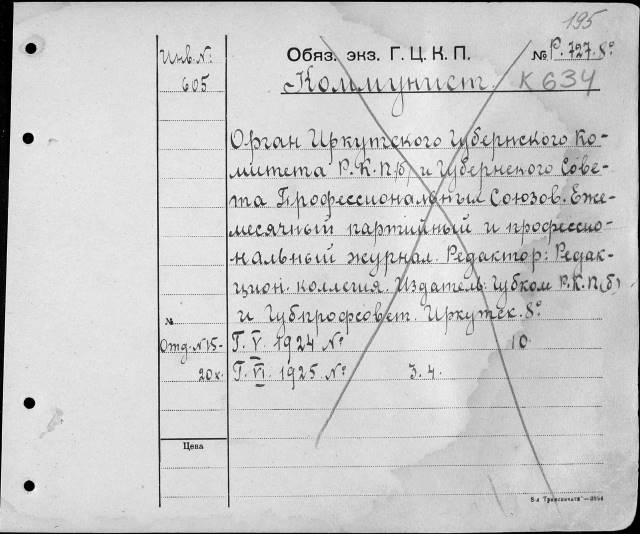 195
Инв. №: Обяз. экз. Г. Ц. К. П. № Р. 727. 8°
605 Коммунист. К 634
Орган Иркутского Губернского Ко-
митета Р.К.П(б) и Губернского Сове-
та Профессиональных Союзов. Еже-
месячный партийный и профессио-
нальный журнал. Редактор: Редак-
цион. коллегия. Издатель: Губком Р.К.П(б)
и Губпрофсовет. Иркутск. 8°
№
Отд. №15- Г. V. 1924 № 10.
20 к. Г. VI. 1925 № 3. 4.
Цена